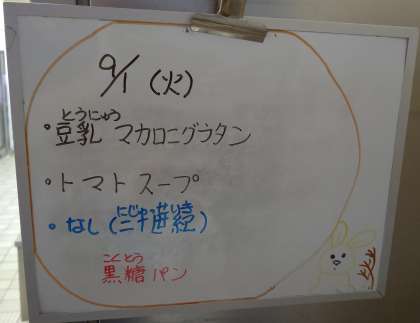 9/1 (火)
とうにゅう
・豆乳 マカロニグラタン
・トマトスープ
にじゅっせいき
・なし(二十世紀)
こくとう
黒糖パン